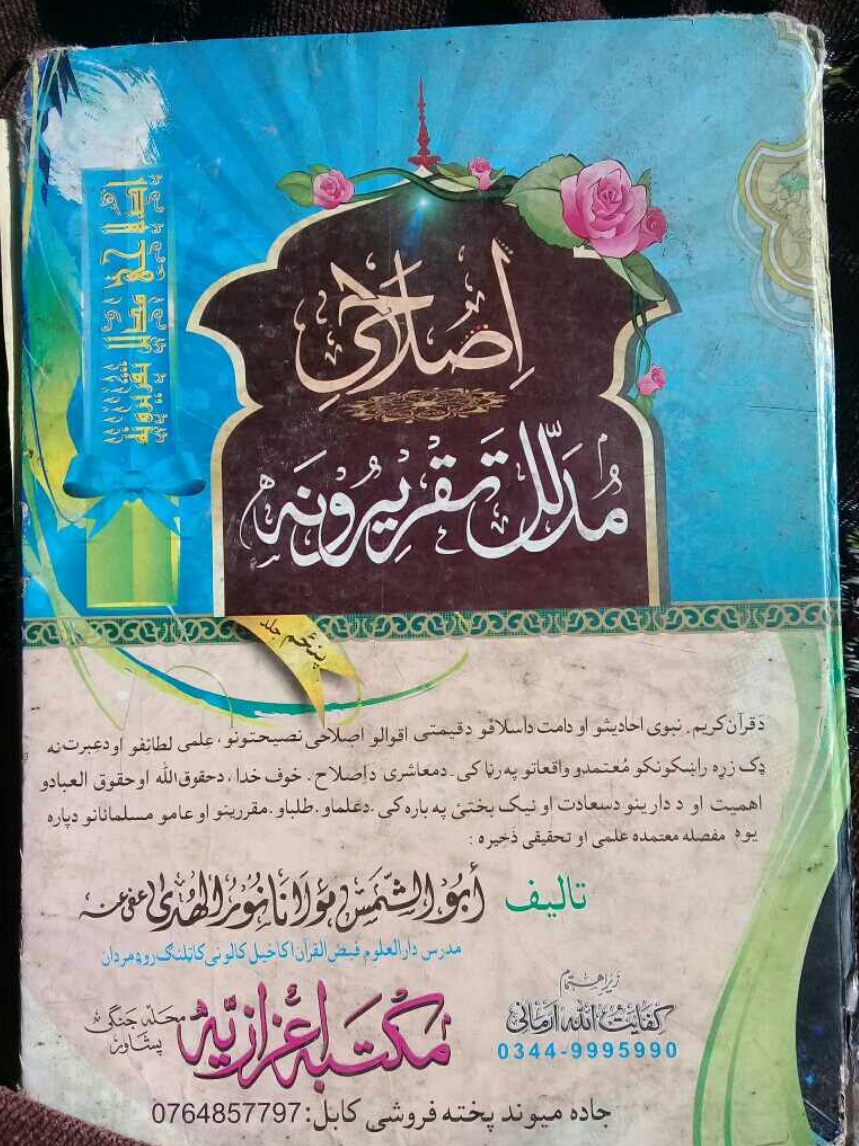 اصلاحي مدلل تقريرونه
اِصْلَاحِي
مُدَلَّل تَقريرُونَه
پنځم جلد
دَقرآن‌کریم۔ نبوی احادیثو او دامت داسلافو دقیمتی اقوالو اصلاحی نصیحتونو، علمی لطائفو او دعبرت نه
ډک زړه راښکونکو مُعتمدو واقعاتو په رڼا کی۔ دمعاشری داِصلاح۔ خوف خدا، دحقوق‌الله او حقوق العبادو
اهمیت او د دارینو دسعادت او نیک بختئ په باره کی۔ دعلماو۔ طلباو۔ مقررینو او عامو مسلمانانو دپاره
یوه مفصله معتمده علمی او تحقیقی ذَخیره:
تالیف أبو الشّمس مَولانا نُورُ الهُدىٰ عفی عنه
مدرس دارالعلوم فیض القرآن اکاخیل کالونی کاټلنګ روډ مردان
زیر اهتمام
کفایت الله ارمانی
0344-9995990
مکتبه اعزازیّه محله جنګی پشاور
جاده میوند پخته فروشی کابل: 0764857797